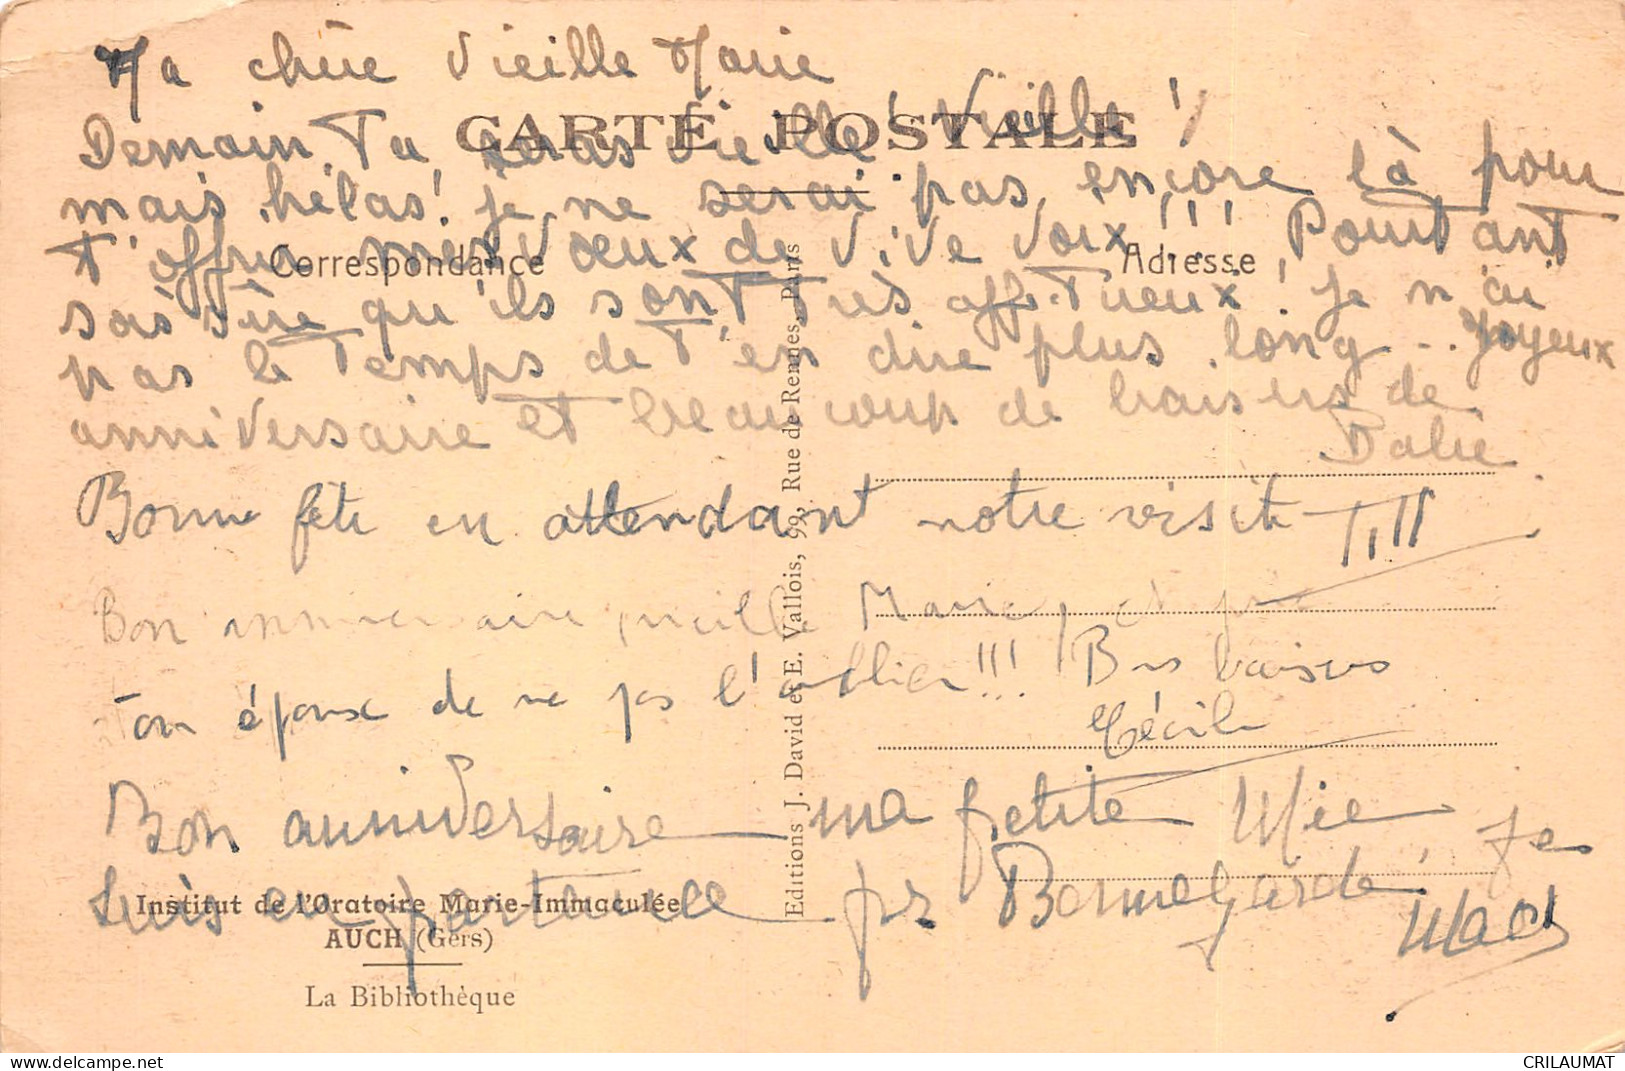 Ma chère Vieille Marie
CARTE POSTALE
Demain, Tu seras vieille! Vieille!
mais, hélas! je ne serai pas encore là pour
T'offrir mes Vœux de Vive Voix!!! Pourtant
Correspondance
Adresse
sois sûre qu'ils sont très affectueux! je n'ai
pas le Temps de T'en dire plus long... Joyeux
anniversaire et beaucoup de baisers de
Dalie
Bonne fête en attendant notre visite
Bon anniversaire, vieille Marie, et prie
ton époux de ne pas l'oublier!!! Bns baisers
Cécile
Bon anniversaire ma petite Mie, je
suis en partance pr Bonnegarde
Mado
Institut de l'Oratoire Marie-Immaculée
AUCH (Gers)
La Bibliothèque
Editions J. David et E. Vallois, 99, Rue de Rennes, Paris
CRILAUMAT